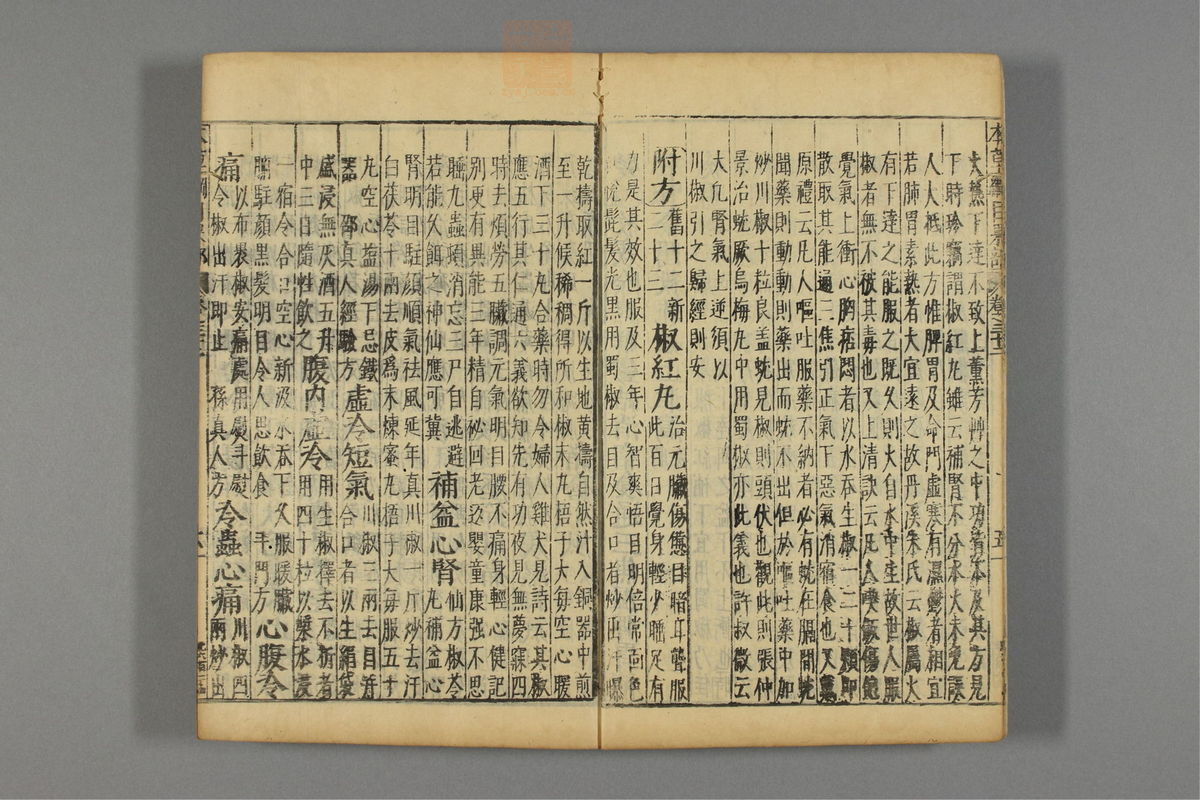 火熏下達不致上薰芳艸之中功皆不及其方見
下時珍竊謂椒紅丸雖云補腎不分水火未免誤
人人秪此方惟脾胃及命門虛寒有濕鬱者相宜
若肺胃素熱者大宜遠之故丹溪朱氏云椒屬火
有下達之能服之既久則火自水中生故世人服
椒者無不被其毒也又上清訣云凡人喫飯傷飽
覺氣上衝心胸痞悶者以水吞生椒一二十顆即
散取其能通三焦引正氣下惡氣消宿食也又戴
原禮云凡人嘔吐服藥不納者必有蚘在膈間蚘
聞藥則動動則藥出而蚘不出但於嘔吐藥中加
炒川椒十粒良蓋蚘見椒則頭伏也觀此則張仲
景治蚘厥烏梅丸中用蜀椒亦此義也許叔微云
大凡腎氣上逆須以
川椒引之歸經則安
附方舊十二新二十三椒紅丸治元臟傷憊目暗耳聾服此百日覺身輕少睡足有
力是其效也服及三年心智爽悟目明倍常面色
紅悅髭髮光黑用蜀椒去目及合口者炒出汗曝
乾擣取紅一斤以生地黃擣自然汁入銅器中煎
至一升候稀稠得所和椒末丸梧子大每空心暖
酒下三十丸合藥時勿令婦人雞犬見詩云其椒
應五行其仁通六義欲知先有功夜見無夢寐四
時去煩勞五臟調元氣明目腰不痛身輕心健記
別更有異能三年精自祕回老返嬰童康强不思
睡九蟲頓消忘三尸自逃避
若能久餌之神仙應可冀補益心腎仙方椒苓丸補益心
腎明目駐顏順氣祛風延年真川椒一斤炒去汗
白茯苓十兩去皮爲末煉蜜丸梧子大每服五十
丸空心鹽湯下忌鐵
器 邵真人經驗方虛冷短氣川椒三兩去目并合口者以生絹袋
盛浸無灰酒五升
中三日隨性飲之腹內虛冷用生椒擇去不拆者用四十粒以漿水浸
一宿令合口空心新汲水吞下久服暖臟
腑駐顏黑髮明目令人思飲食 斗門方心腹冷
痛以布裹椒安痛處用熨斗熨令椒出汗即止 孫真人方冷蟲心痛川椒四兩炒出